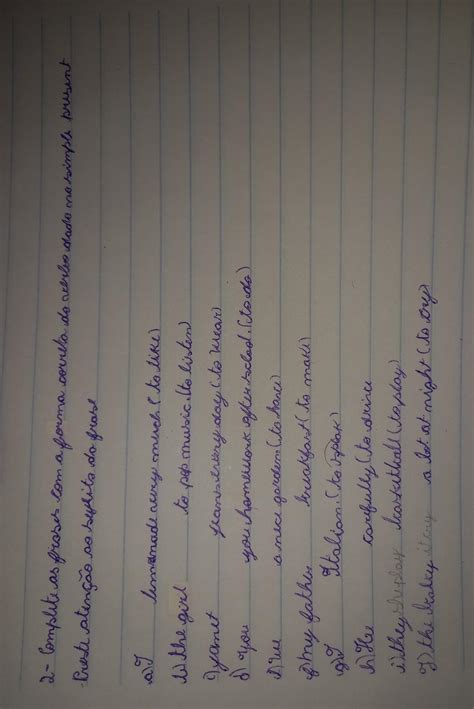 2- Complete as frases com a forma correta do verbo dado no simple present
Preste atenção ao sujeito da frase
a) I lemonade very much (to like)
b) the girl to pop music (to listen)
c) yanet jeans every day (to wear)
d) you you homework after school. (to do)
e) we a nice garden (to have)
f) my father breakfast (to make)
g) I Italian (to speak)
h) He carefully (to drive
i) they the play basketball (to play)
J) the baley it cry a lot at night (to cry)